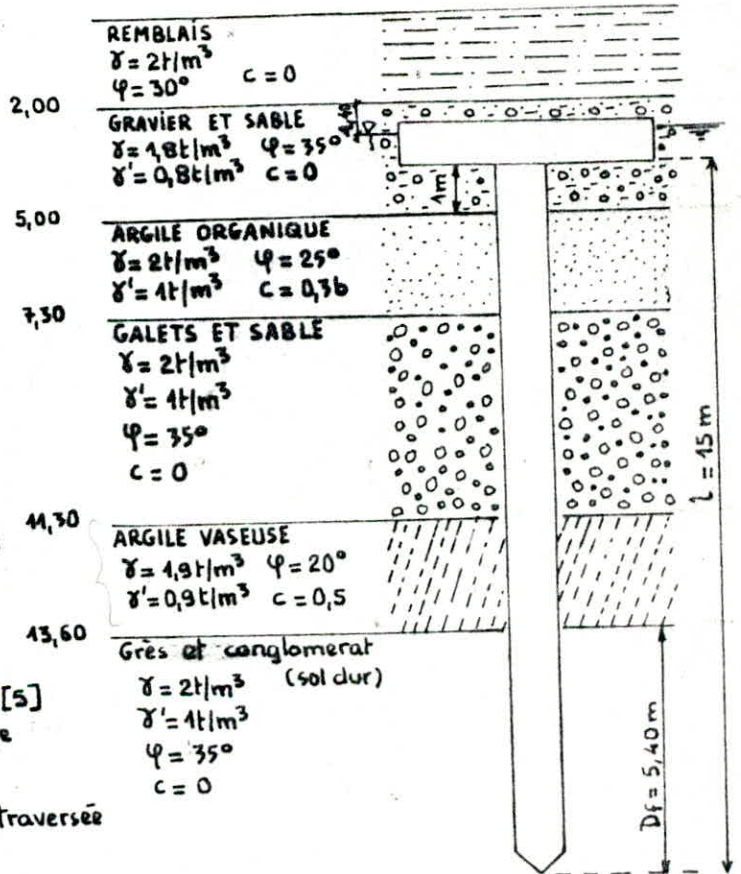 REMBLAIS
γ = 2t/m³
φ = 30° c = 0
2,00
GRAVIER ET SABLE
γ = 1,8t/m³ φ = 35°
γ' = 0,8t/m³ c = 0
1m
5,00
ARGILE ORGANIQUE
γ = 2t/m³ φ = 25°
γ' = 1t/m³ c = 0,36
7,30
GALETS ET SABLE
γ = 2t/m³
γ' = 1t/m³
φ = 35°
c = 0
l = 15 m
11,30
ARGILE VASEUSE
γ = 1,9t/m³ φ = 20°
γ' = 0,9t/m³ c = 0,5
13,60
Grès et conglomerat
(sol dur)
γ = 2t/m³
γ' = 1t/m³
φ = 35°
c = 0
Df = 5,40 m
[5]
traversée